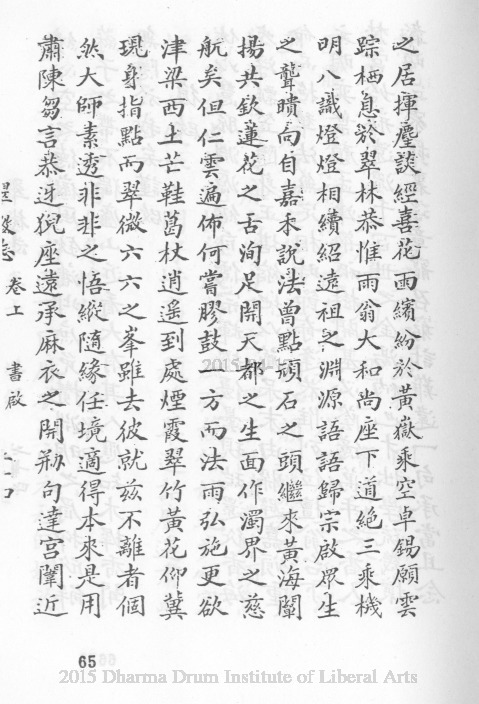 之居揮麈談經喜花雨繽紛於黃嶽乘空卓錫願雲
踪栖息於翠林恭惟雨翁大和尚座下道絶三乘機
明八識燈燈相續紹遠祖之淵源語語歸宗啟眾生
之聾聵向自嘉禾說法曾點頑石之頭繼來黃海闡
揚共欽蓮花之舌洵足開天都之生面作濁界之慈
航矣但仁雲遍佈何嘗膠鼓一方而法雨弘施更欲
津梁西土芒鞋葛杖逍遥到處煙霞翠竹黃花仰冀
現身指點而翠微六六之峯雖去彼就兹不離者個
然大師素透非非之悟縱隨緣任境適得本來是用
肅陳芻言恭迓猊座遠承麻衣之開刱句達宮闈近
卷上 書啟
65
2015 Dharma Drum Institute of Liberal Arts